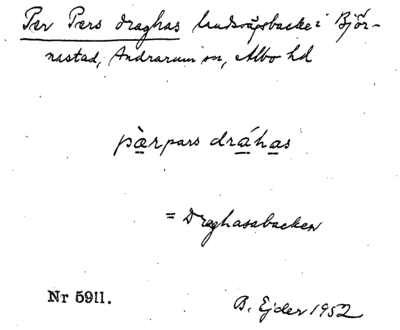 Per Pers draghas landsvägsbacke i Björ-
nastad, Andrarum sn, Albo hd
pàrpars dráhas
= Draghasabacken
Nr 5911.
B. Ejder 1952